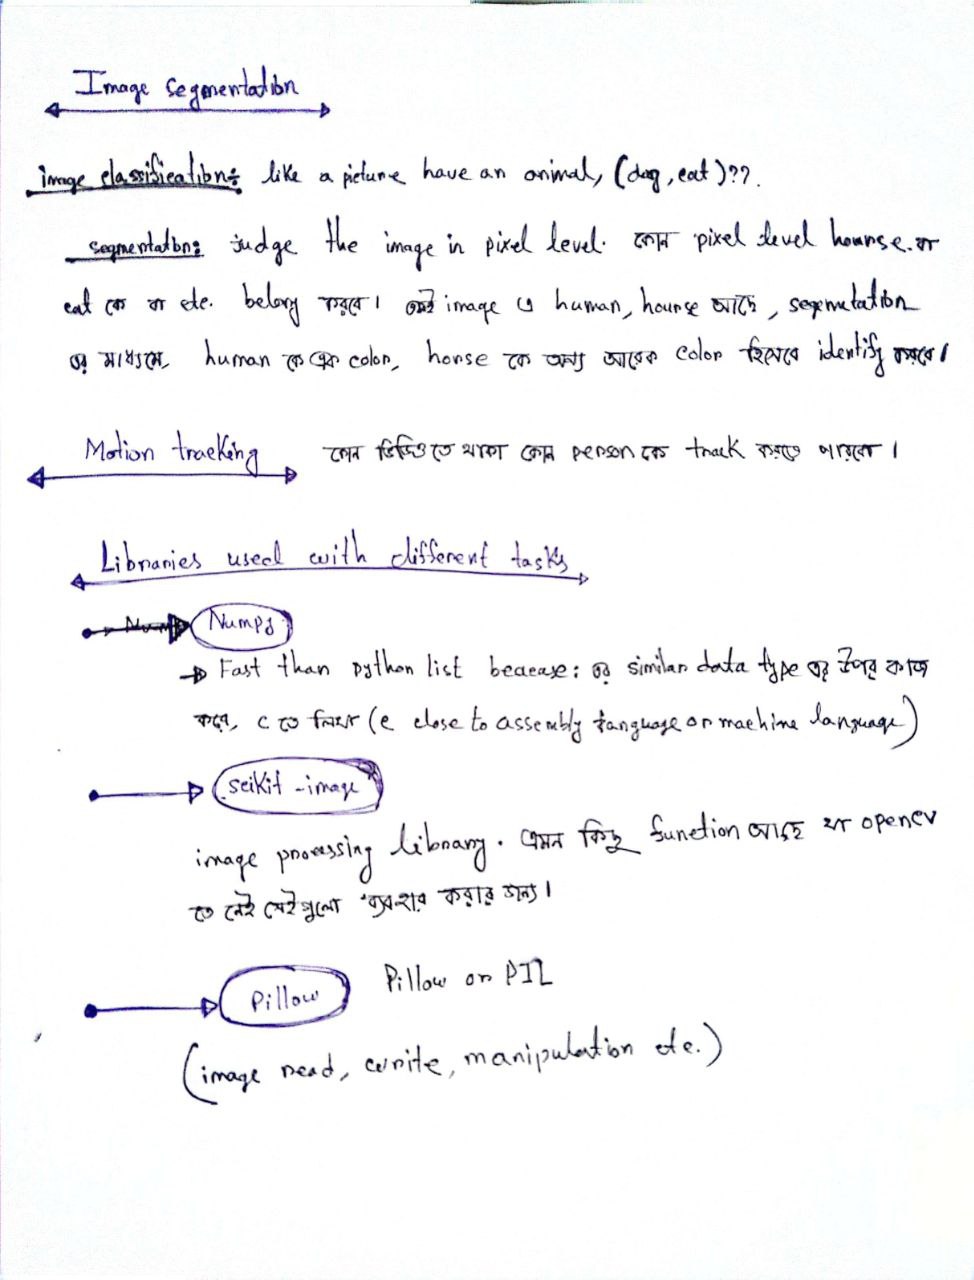 Image segmentation
image classification: like a picture have an animal, (dog, cat)??.
segmentation: judge the image in pixel level. কোন pixel level hounse. বা
cat কে বা etc. belong করবে। একই image এ human, hounse আছে, segemutation
এর মাধ্যমে, human কে এক color, horse কে অন্য আরেক color হিসেবে identify করবে।
Motion tracking কোন ভিডিওতে থাকা কোন person কে track করতে পারবো।
Libraries used with different tasks
Numpy
Fast than python list because: এর similar data type এর উপর কাজ
করে, C তে লিখা (c close to assembly language or machine language)
scikit-image
image processing library. এমন কিছু function আছে যা opencv
তে নেই সেইগুলো ব্যবহার করার জন্য।
Pillow Pillow or PIL
(image read, write, manipulation etc.)